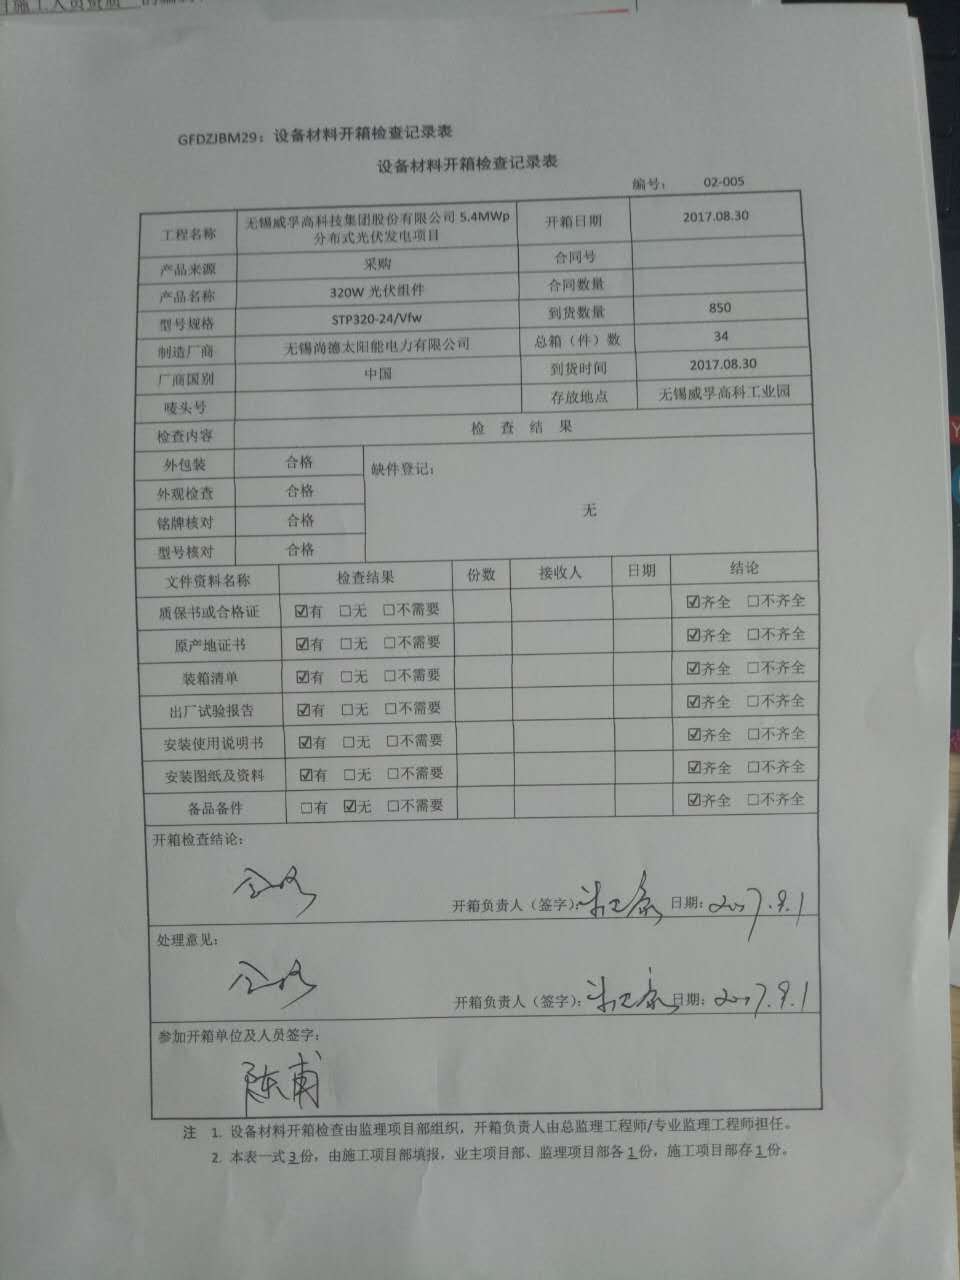 GFDZJBM29：设备材料开箱检查记录表
设备材料开箱检查记录表
编号： 02-005
工程名称 无锡威孚高科技集团股份有限公司 5.4MWp 分布式光伏发电项目 开箱日期 2017.08.30
产品来源 采购 合同号
产品名称 320W 光伏组件 合同数量
型号规格 STP320-24/Vfw 到货数量 850
制造厂商 无锡尚德太阳能电力有限公司 总箱（件）数 34
厂商国别 中国 到货时间 2017.08.30
唛头号 存放地点 无锡威孚高科工业园
检查内容 检 查 结 果
外包装 合格 缺件登记：
外观检查 合格
铭牌核对 合格 无
型号核对 合格
文件资料名称 检查结果 份数 接收人 日期 结论
质保书或合格证 ☑有 □无 □不需要 ☑齐全 □不齐全
原产地证书 ☑有 □无 □不需要 ☑齐全 □不齐全
装箱清单 ☑有 □无 □不需要 ☑齐全 □不齐全
出厂试验报告 ☑有 □无 □不需要 ☑齐全 □不齐全
安装使用说明书 ☑有 □无 □不需要 ☑齐全 □不齐全
安装图纸及资料 ☑有 □无 □不需要 ☑齐全 □不齐全
备品备件 □有 ☑无 □不需要 ☑齐全 □不齐全
开箱检查结论：
合格
开箱负责人（签字）： 日期：2017.9.1
处理意见：
合格
开箱负责人（签字）： 日期：2017.9.1
参加开箱单位及人员签字：
陈甫
注 1. 设备材料开箱检查由监理项目部组织，开箱负责人由总监理工程师/专业监理工程师担任。
2. 本表一式 3 份，由施工项目部填报，业主项目部、监理项目部各 1 份，施工项目部存 1 份。